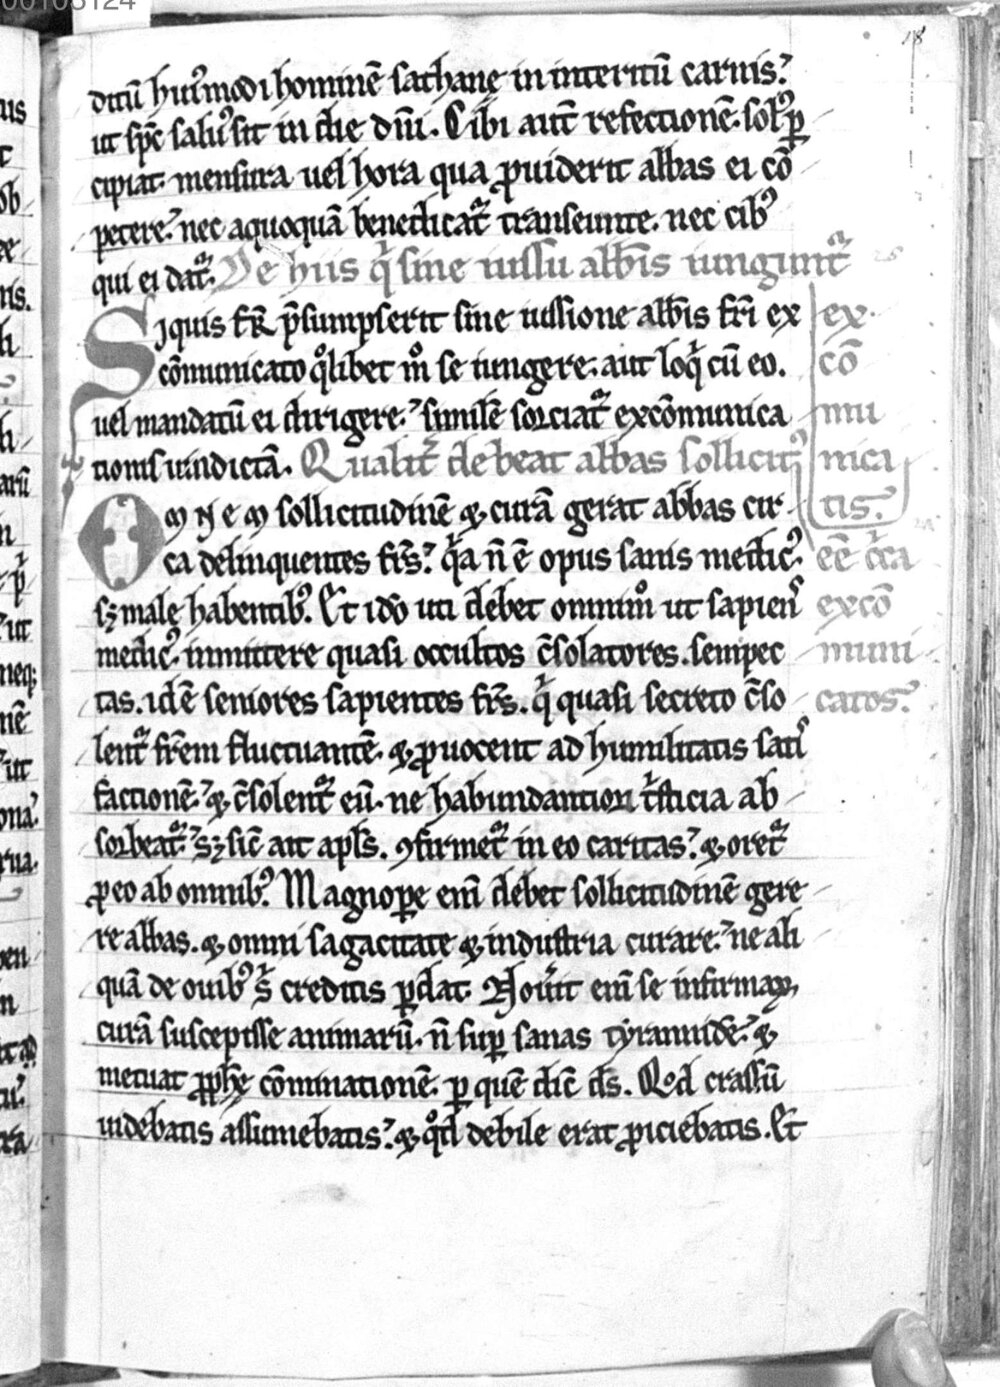 00108124
18
ditū hui᷒modi hominē sathanę in interitū carnis.
ut sp̄c salu᷒ sit in die dn̄i. Cibi aut̄ refectionē. sol᷒ ꝑ
cipiat. mensura uel hora qua ꝓuiderit abbas ei cō
petere. nec aquoquā benedicat᷑ transeunte. nec cib᷒
qui ei dat᷑. De hiis qͥ sine iussu abb̄is iungunt᷑
Siquis fr̄ p̄sumpserit sine iussione abb̄is fr̄i ex | ex
cōmunicato qͦlibet mͦ se iungere. aut loqͥ cū eo. | cō
uel mandatū ei dirigere. similē sorciat᷑ excōmunica | mu
tionis uindictā. Qualit̄ debeat abbas sollicit᷒ | nica
OMNEM sollicitudinē & curā gerat abbas cir | tis.
ca delinquentes fr̄s. qͣa n̄ ē opus sanis medic᷒ | eē cͥca
sꝫ male habentib᷒. Et iđo uti debet omnimͦ ut sapiens | excō
medic᷒. inmittere quasi occultos c̄solatores. sempec | muni
tas. idē seniores sapientes fr̄s. qͥ quasi secreto c̄so | catos.
lent᷑ fr̄em fluctuantē. & ꝓuocent ad humilitatis satis
factionē. & c̄solent᷑ eū. ne habundantiori tͥsticia ab
sorbeat᷑. sꝫ sic̄ ait apl̄s. ꝯfirmet᷑ in eo caritas. & oret᷑
ꝓ eo ab omnib᷒. Magnoꝑe eni̅ debet sollicitudinē gere
re abbas. & omni sagacitate & industria curare. ne ali
quā de ouib᷒ sͥ creditis ꝑdat. Nouͥit eni̅ se infirmaꝝ
curā suscepisse animarū. n̄ suꝑ sanas tyrannidē. &
metuat ꝓph̄ę cōminationē. ꝑ quē dic̄ ds̄. Qd̄ crassū
uidebatis assumebatis. & qͦd debile erat ꝓiciebatis. Et